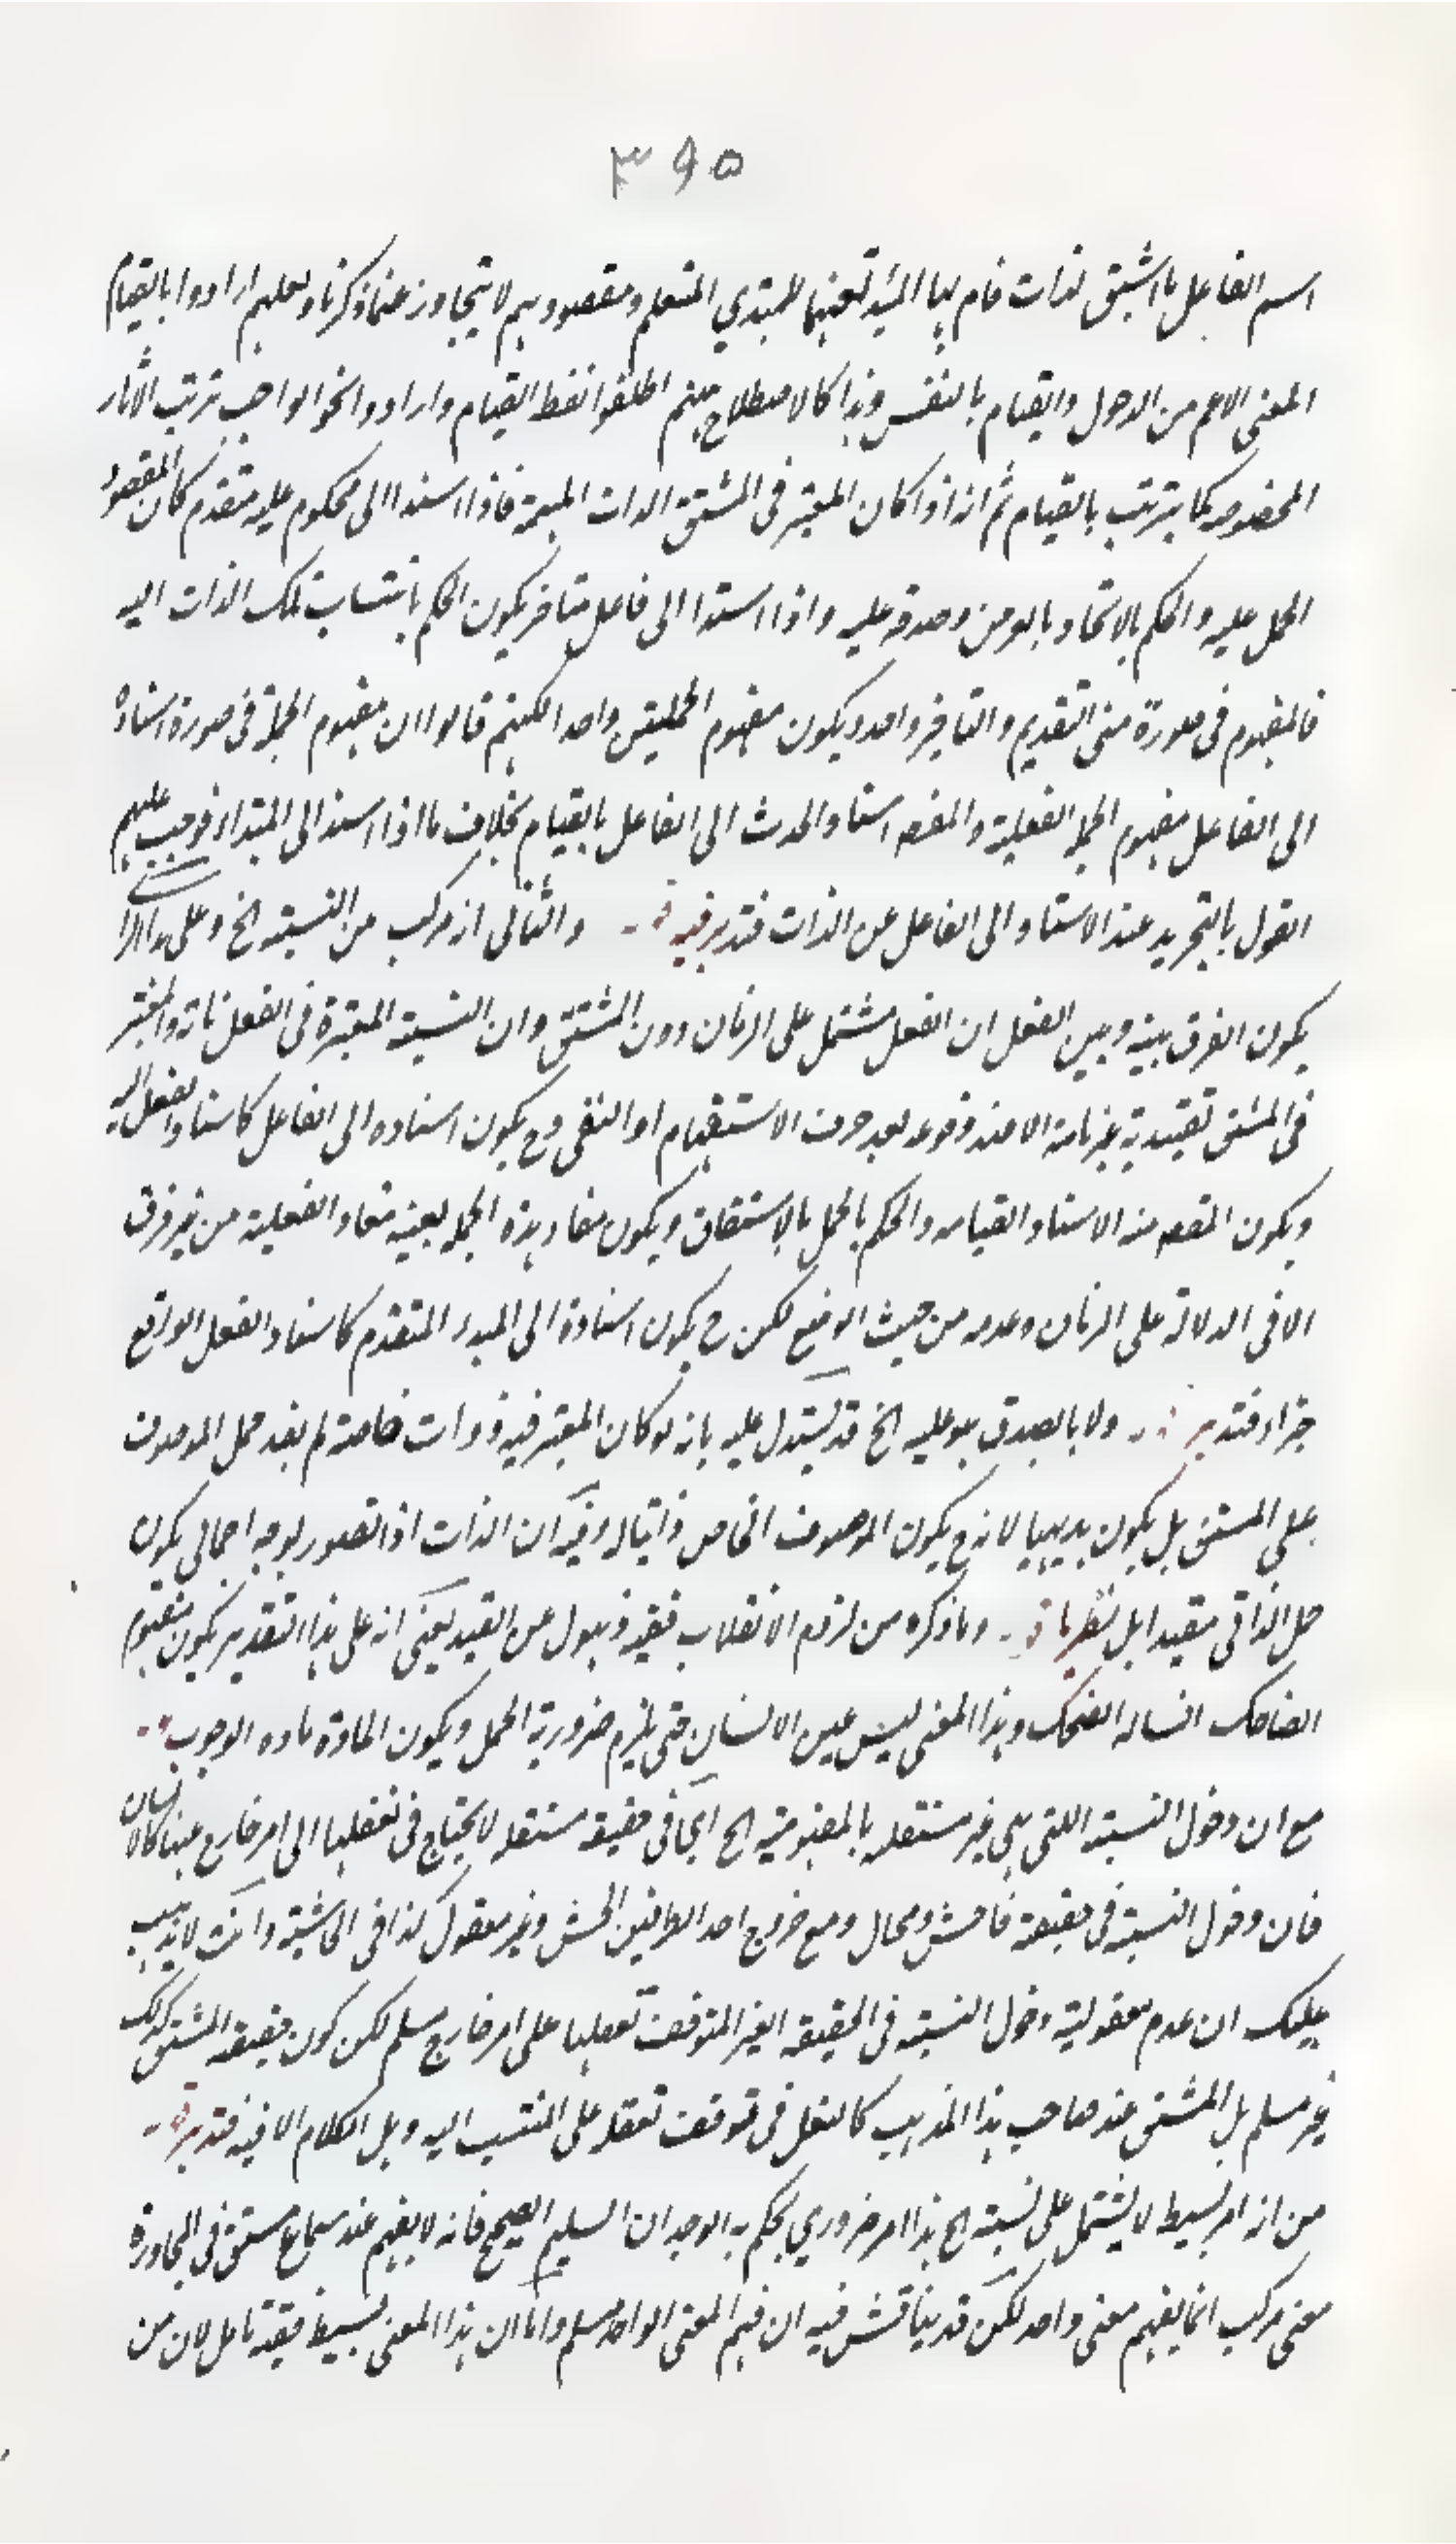 ٣٩٥
اسم الفاعل ما اشتق لذات قام بها المبدء تفهيما للمبتدي المتعلم ومقصودهم لا يتجاوز عما ذكرنا ولعلهم ارادوا بالقيام
المعنى الاعم من الدخول والقيام بالنفس وهذا كالاصطلاح منهم اطلقوا لفظ القيام وارادوا نحوا لواجب ترتب الاثار
المخصوصه كما يترتب بالقيام ثم انه اذا كان المعتبر في المشتق الذات المبهمة فاذا اسند الى محكوم عليه متقدم كان المقصود
الحمل عليه والحكم بالاتحاد بالعرض وصدقه عليه واذا استند الى فاعل متاخر يكون الحكم بانتساب تلك الذات اليه
فالمفهوم في صورة منى التقديم والتاخير واحد ويكون مفهوم الجملتين واحد الكنهم قالوا ان مفهوم الجملة في صورة اسناده
الى الفاعل مفهوم الجملة الفعلية والمقصد اسناد الحدث الى الفاعل بالقيام بخلاف ما اذا اسند الى المبتداء فوجب عليهم
القول بالتجريد عند الاسناد الى الفاعل عن الذات فتدبر فيه والثاني انه مركب من النسبة الخ وعلى هذا
يكون الفرق بينه وبين الفعل ان الفعل مشتمل على الزمان دون المشتق وان النسبة المعتبرة في الفعل تامة والمعتبر
في المشتق تقييدية غير تامة الا عند وقوعه بعد حرف الاستفهام او النفي وح يكون اسناده الى الفاعل كاسناد الفعل اليه
ويكون المقصد منه الاسناد القيامه والحكم بالحمل بالاشتقاق ويكون مفاد هذه الجملة بعينه مفاد الفعلية من غير فرق
الا في الدلالة على الزمان وعدمه من حيث الوضع لكن ح يكون اسناده الى المبدء المتقدم كاسناد الفعل الواقع
خبرا فتدبر ولا بالصدق هو عليه الخ قد يستدل عليه بانه لو كان المعتبر فيه ذوات خاصة لم يفد حمل الموصوف
على المشتق بل يكون بديهيا لانه ح يكون الموصوف الخاص ذاتيا له وفيه ان الذات اذا تصور بوجه اجمالي يكون
حمل الذاتي مقيدا بل نظريا وما ذكره من لزوم الانقلاب ففيه ذهول عن القيد يعني انه على هذا التقدير يكون مفهوم
الضاحك انسا له الضحك وهذا المعنى ليس عين الانسان حتى يلزم ضرورية الحمل ويكون المادة ماده الوجوب
مع ان دخول النسبة اللتي هي غير مستقله بالمفهومية الخ اي في حقيقه مستقله لا يحتاج في تعقلها الى امر خارج عنها كالانسان
فان دخول النسبة في حقيقة فاحش ومحال ومع خروج احد الطرفين افحش وغير معقول كذا في الحاشية وانت لا يذهب
عليك ان عدم معقولية دخول النسبة في الحقيقه الغير المتوقف تعقلها على امر خارج مسلم لكن كون حقيقة المشتق كذلك
غير مسلم بل المشتق عند صاحب هذا المذهب كالفعل في توقف تعقله على المنتسب اليه وهل الكلام الا فيه فتدبر
من انه امر بسيط لا يشتمل على نسبة الخ هذا امر ضروري يحكم به الوجدان السليم الصحيح فانه لا يفهم عند سماع مشتق في المحاورة
معنى مركب انما يفهم معنى واحد لكن قد يناقش فيه ان فهم المعنى الواحد مسلم واما ان هذا المعنى بسيط ففيه تامل لان من